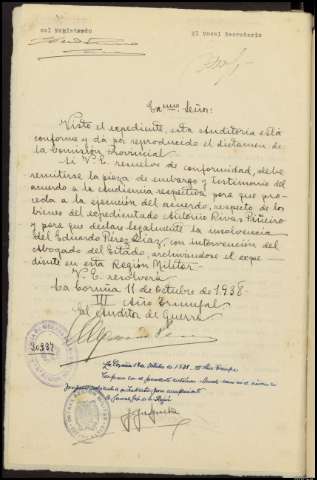 El Magistrado
El Vocal Secretario
Exmo Señor:
Visto el expediente, esta Auditoría está
conforme y da por reproducido el dictamen de
la Comisión Provincial
Si V.E. resuelve de conformidad, debe
remitirse la pieza de embargo y testimonio del
acuerdo a la Audiencia respectiva para que pro-
ceda a la ejecución del acuerdo, respecto de los
bienes del expedientado Antonio Rivas Piñeiro
y para que declare legalmente la insolvencia
del Eduardo Pérez Díaz, con intervención del
Abogado del Estado, archivandose el expe-
diente en esta Región Militar.
V.E. resolverá
La Coruña 11 de Octubre de 1938.
III Año Triunfal
El Auditor de Guerra
30.337
La Coruña de Octubre de 1938. III Año Triunfal
Conforme con el precedente dictamen